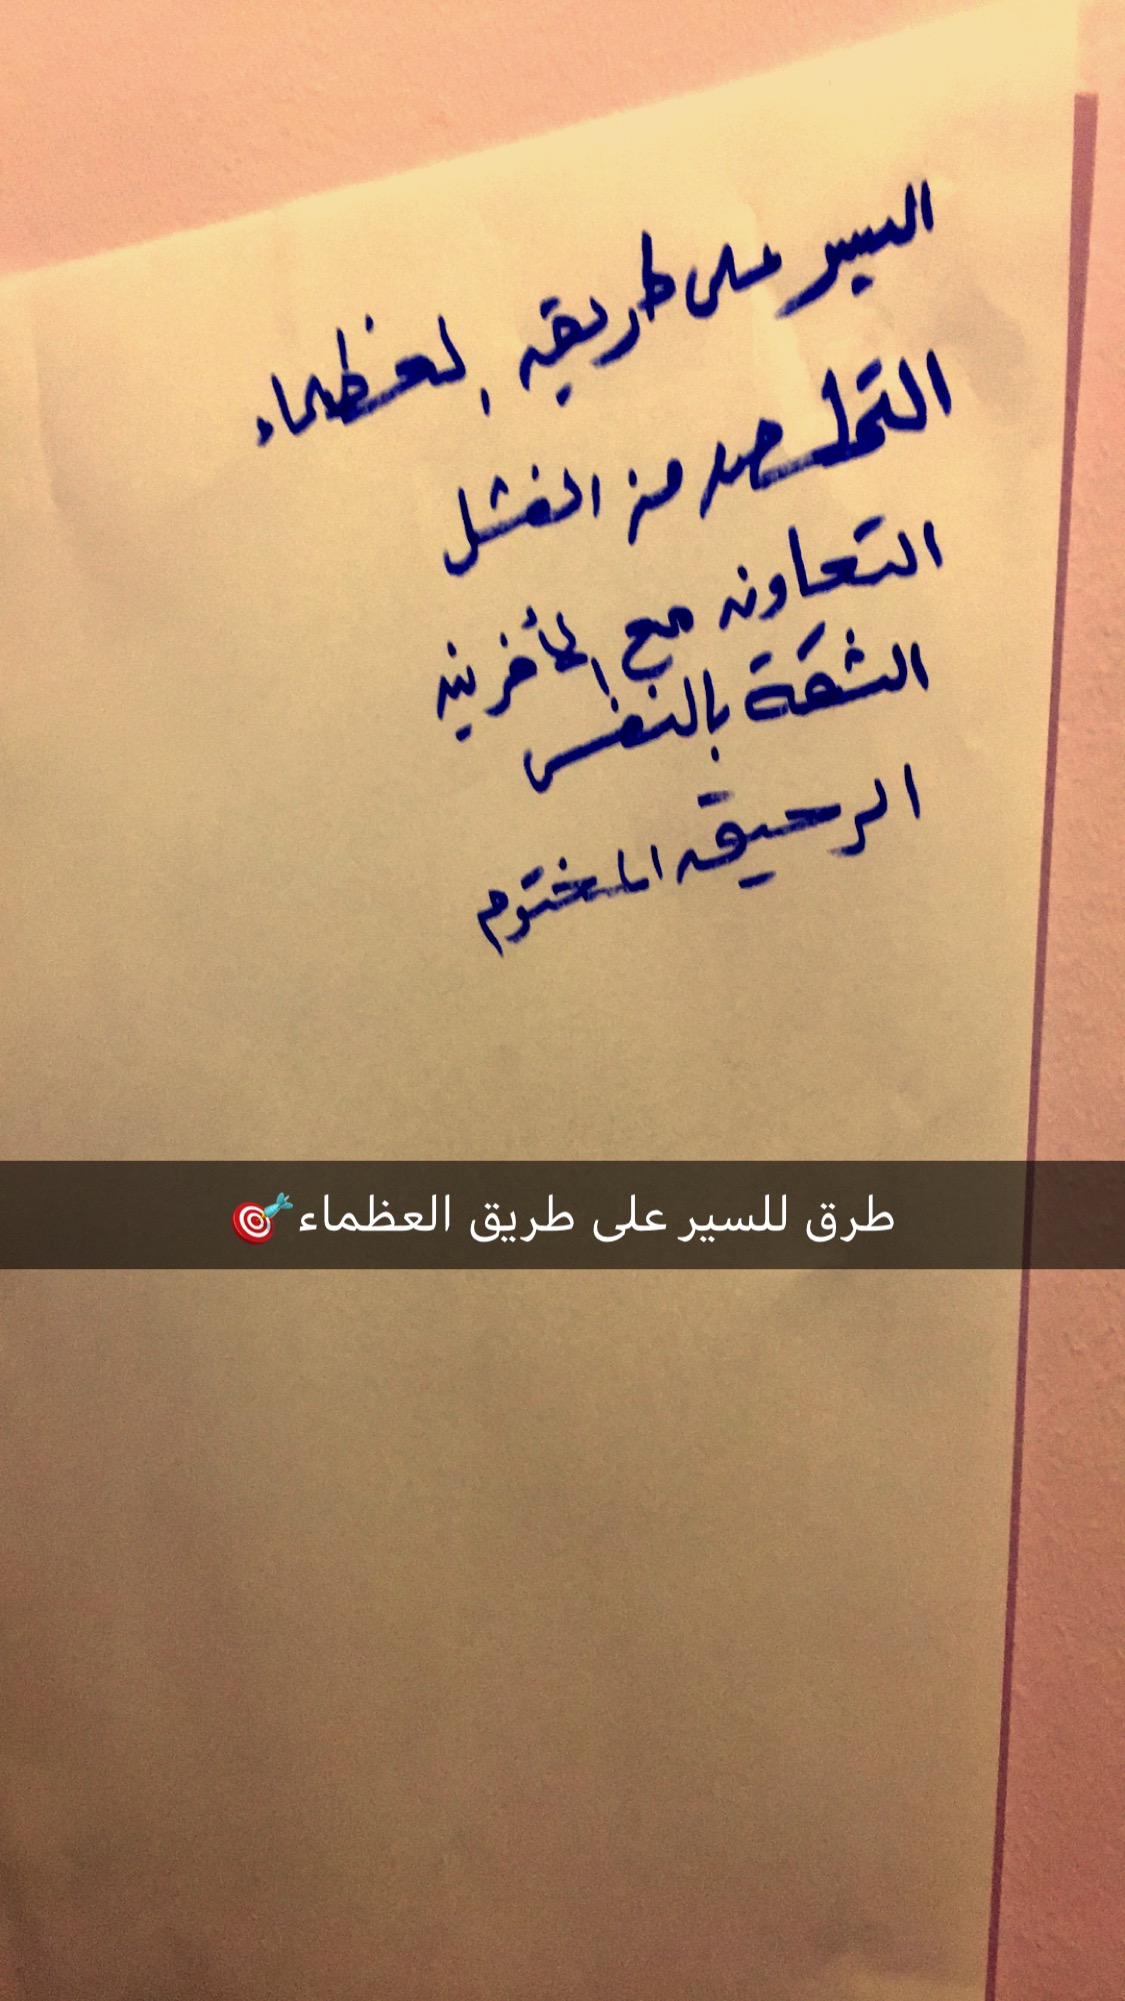 السير على طريق العظماء
التخلص من الفشل
التعاون مع الأخرين
الثقة بالنفس
الرحيق المختوم
طرق للسير على طريق العظماء 🎯